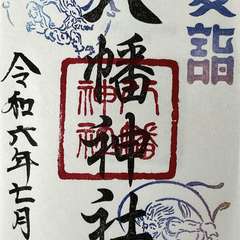 夏詣
八幡神社
八幡
神社
令和六年七月